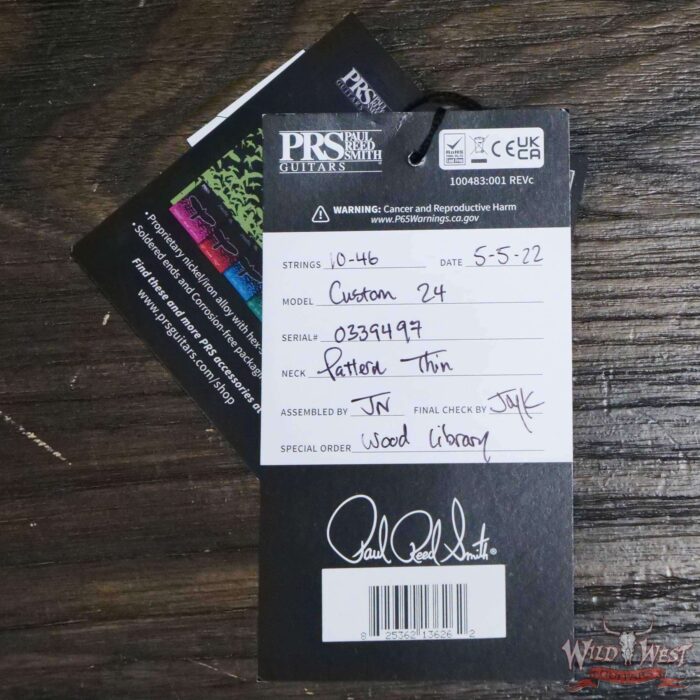 PRS
GUITARS
• Proprietary nickel/iron alloy with hex-
• Soldered ends and Corrosion-free packag
Find these and more PRS accessories at
www.prsguitars.com/shop
PRS PAUL REED SMITH
GUITARS
RoHS
CE UKCA
100483:001 REVc
WARNING: Cancer and Reproductive Harm
www.P65Warnings.ca.gov
STRINGS 10-46 DATE 5-5-22
MODEL Custom 24
SERIAL# 0339497
NECK Pattern Thin
ASSEMBLED BY JN FINAL CHECK BY
SPECIAL ORDER Wood Library
Paul Reed Smith®
8 25362 13626 2
WILD WEST